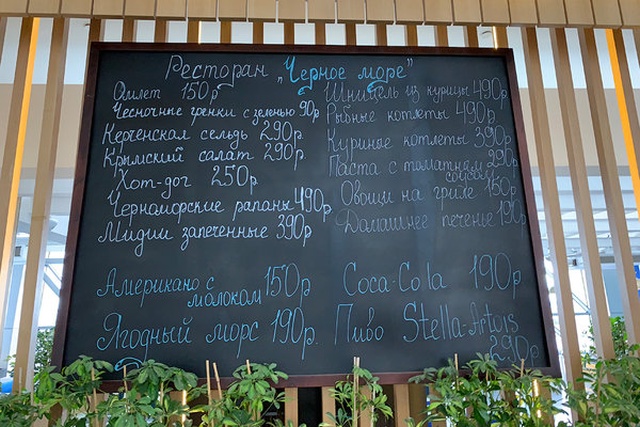 Ресторан „Черное море"
Омлет 150р
Чесночные гренки с зеленью 90р
Керченская сельдь 290р.
Крымский салат 290р.
Хот-дог 250р
Черноморские рапаны 490р.
Мидии запеченные 390р.
Американо с
молоком 150р
Ягодный морс 190р.
Шницель из курицы 490р
Рыбные котлеты 490р
Куриные котлеты 390р
Паста с томатным
соусом
Овощи на гриле 150р
Домашнее печенье 190р
Coca-Cola 190р
Пиво Stella-Artois
290р